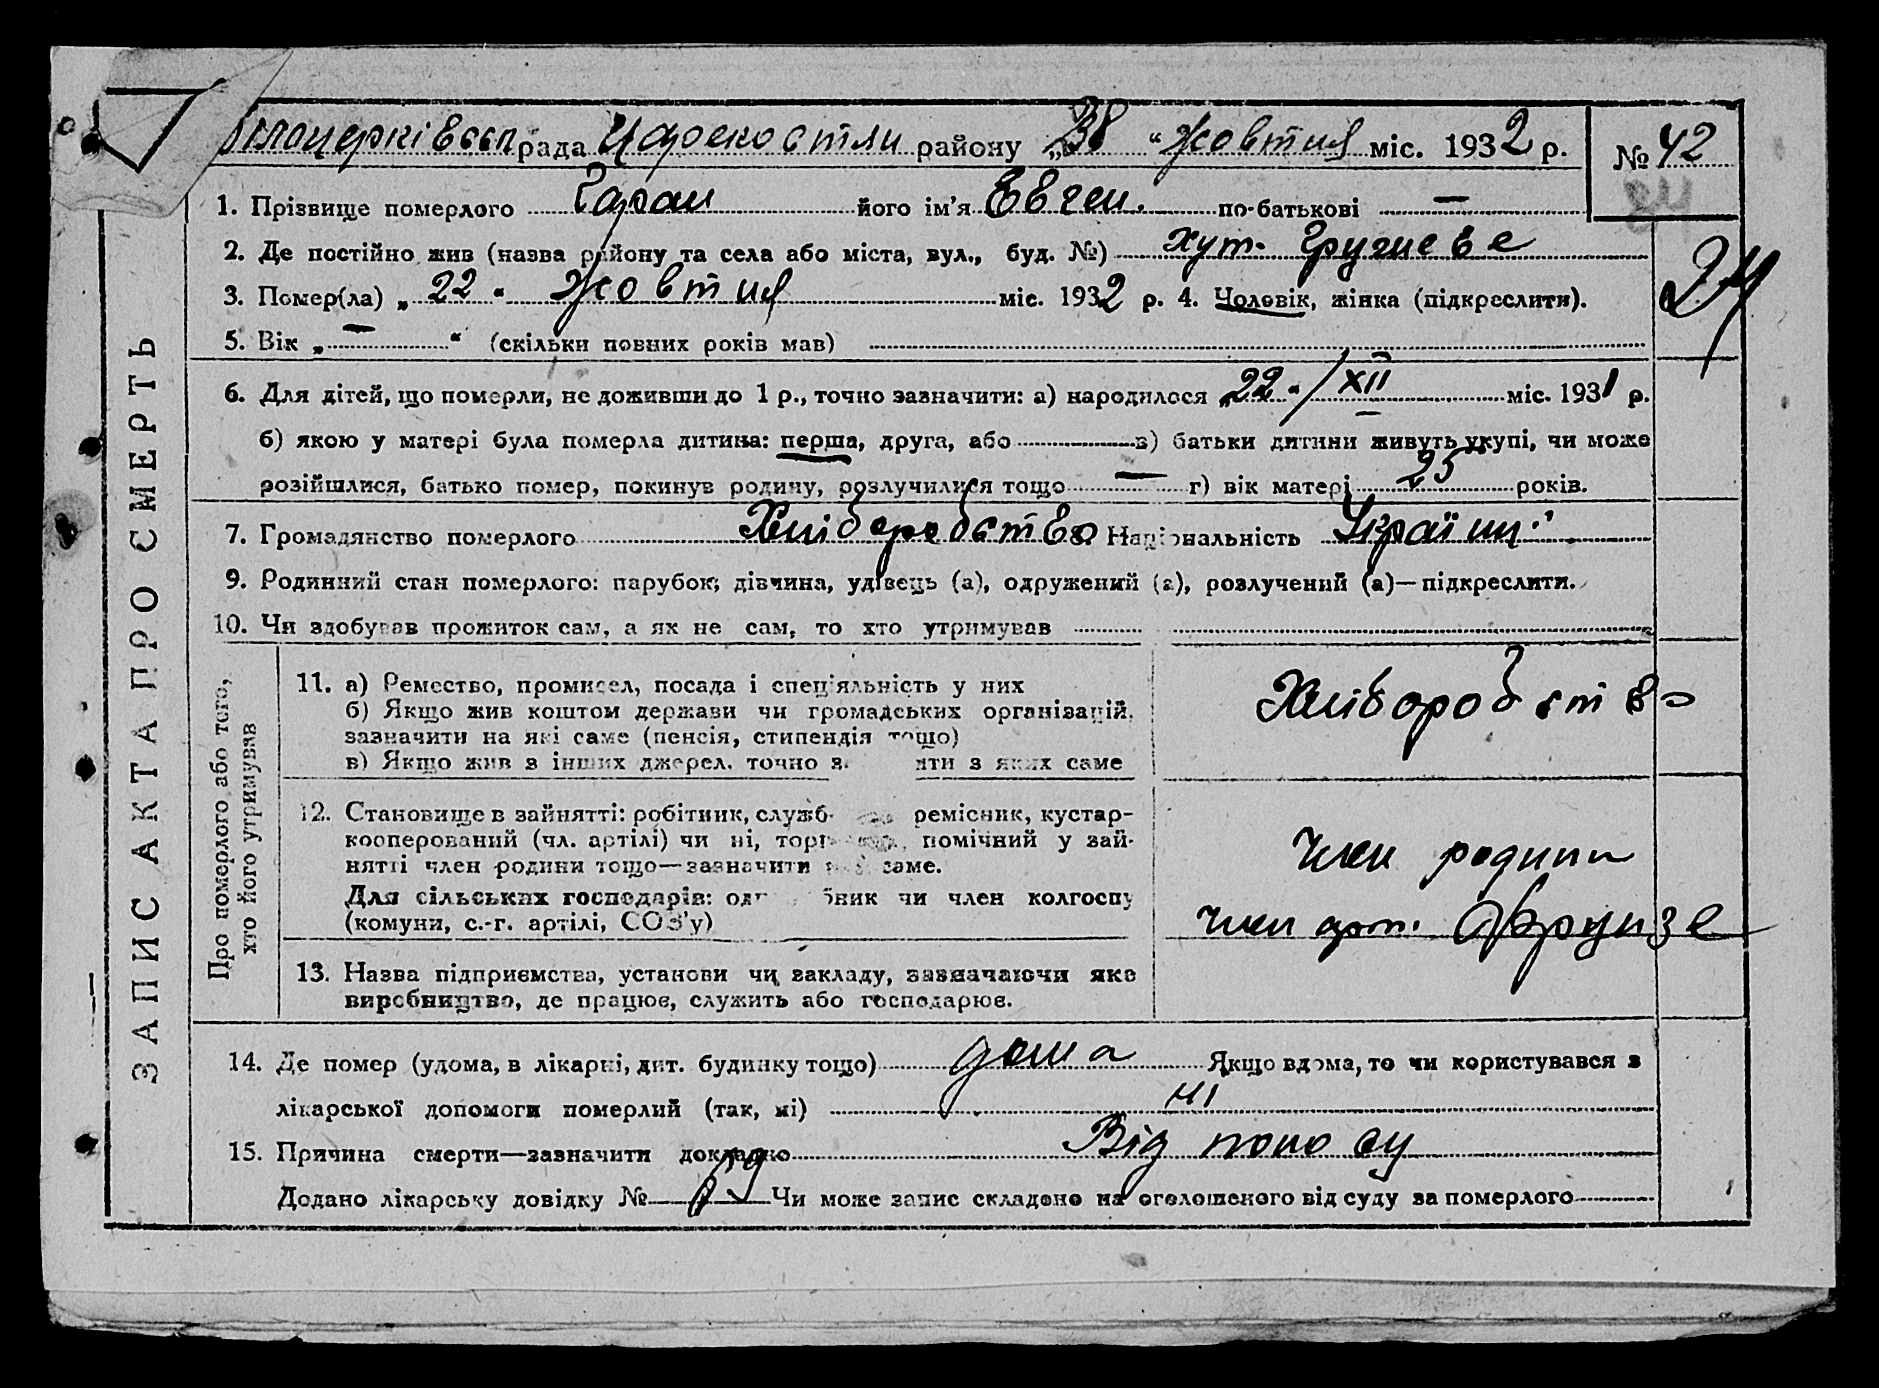 ЗАПИС АКТА ПРО СМЕРТЬ
рада району „28“ Жовтня міс. 1932 р.
№ 42
1. Прізвище померлого Гаран його ім'я Евген. по-батькові —
2. Де постійно жив (назва району та села або міста, вул., буд. №) хут.
24
3. Помер(ла) „22“ Жовтня міс. 1932 р. 4. Чоловік, жінка (підкреслити).
5. Вік „—“ (скільки повних років мав)
6. Для дітей, що померли, не доживши до 1 р., точно зазначити: а) народилося „22“ / XII міс. 1931 р.
б) якою у матері була померла дитина: перша, друга, або в) батьки дитини живуть укупі, чи може
розійшлися, батько помер, покинув родину, розлучилися тощо — г) вік матері 25 років.
7. Громадянство померлого Хліборобство 8. Національність Україн.
9. Родинний стан померлого: парубок, дівчина, удівець (а), одружений (а), розлучений (а)—підкреслити.
10. Чи здобував прожиток сам, а як не сам, то хто утримував
Про померлого або того,
хто його утримував
11. а) Ремество, промисел, посада і спеціяльність у них
б) Якщо жив коштом держави чи громадських організацій,
зазначити на які саме (пенсія, стипендія тощо)
в) Якщо жив з інших джерел, точно з яких саме
Хліборобство
12. Становище в зайнятті: робітник, служб- ремісник, кустар-
кооперований (чл. артілі) чи ні, помічний у зай-
нятті член родини тощо—зазначити саме.
Для сільських господарів: чи член колгоспу
(комуни, с.-г. артілі, СОЗ'у)
Член родини
член арт. Фрунзе
13. Назва підприємства, установи чи закладу, зазначаючи яке
виробництво, де працює, служить або господарює.
14. Де помер (удома, в лікарні, дит. будинку тощо) дома Якщо вдома, то чи користувався з
лікарської допомоги померлий (так, ні) ні
15. Причина смерти—зазначити докладно Від поносу
Додано лікарську довідку № Чи може запис складено на оголошеного від суду за померлого